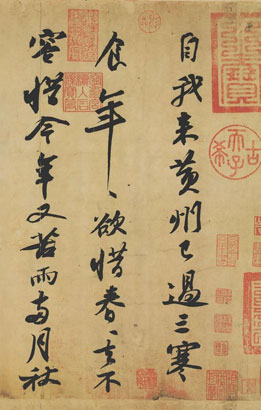 古希天子
自我來黃州已過三寒
食年〻欲惜春〻去不
容惜今年又苦雨兩月秋